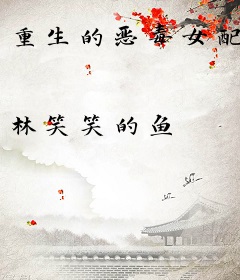 重生的恶毒女配
林笑笑的鱼